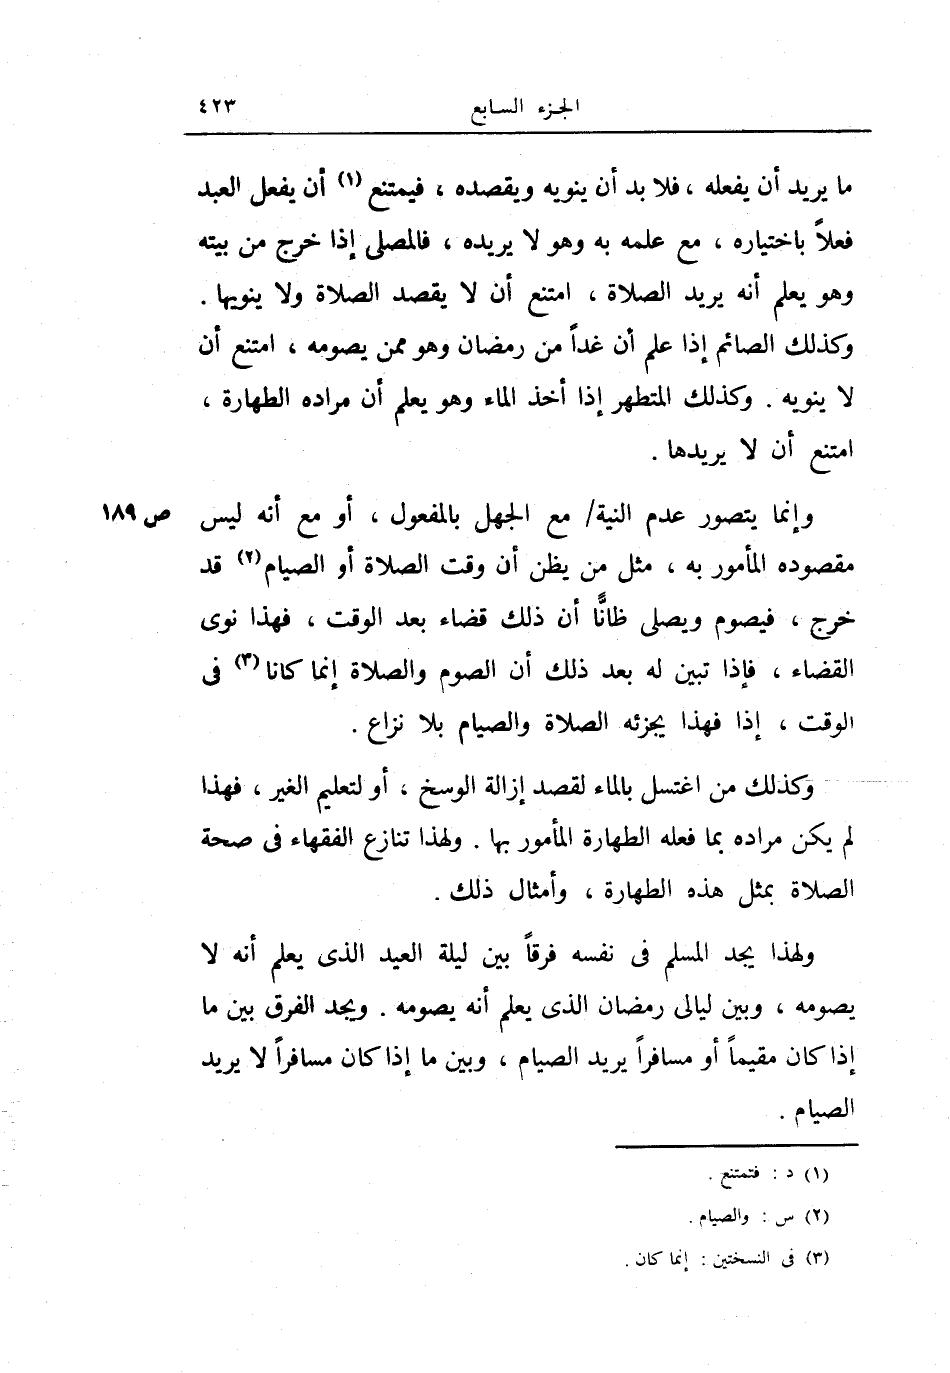 الجزء السابع ٤٢٣
ما يريد أن يفعله ، فلا بد أن ينويه ويقصده ، فيمتنع (١) أن يفعل العبد
فعلاً باختياره ، مع علمه به وهو لا يريده ، فالمصلى إذا خرج من بيته
وهو يعلم أنه يريد الصلاة ، امتنع أن لا يقصد الصلاة ولا ينويها .
وكذلك الصائم إذا علم أن غداً من رمضان وهو ممن يصومه ، امتنع أن
لا ينويه . وكذلك المتطهر إذا أخذ الماء وهو يعلم أن مراده الطهارة ،
امتنع أن لا يريدها .
وإنما يتصور عدم النية/ مع الجهل بالمفعول ، أو مع أنه ليس ص ١٨٩
مقصوده المأمور به ، مثل من يظن أن وقت الصلاة أو الصيام (٢) قد
خرج ، فيصوم ويصلى ظانًّا أن ذلك قضاء بعد الوقت ، فهذا نوى
القضاء ، فإذا تبين له بعد ذلك أن الصوم والصلاة إنما كانا (٣) فى
الوقت ، إذا فهذا يجزئه الصلاة والصيام بلا نزاع .
وكذلك من اغتسل بالماء لقصد إزالة الوسخ ، أو لتعليم الغير ، فهذا
لم يكن مراده بما فعله الطهارة المأمور بها . ولهذا تنازع الفقهاء فى صحة
الصلاة بمثل هذه الطهارة ، وأمثال ذلك .
ولهذا يجد المسلم فى نفسه فرقاً بين ليلة العيد الذى يعلم أنه لا
يصومه ، وبين ليالى رمضان الذى يعلم أنه يصومه . ويجد الفرق بين ما
إذا كان مقيماً أو مسافراً يريد الصيام ، وبين ما إذا كان مسافراً لا يريد
الصيام .
(١) د : فتمتنع .
(٢) س : والصيام .
(٣) فى النسختين : إنما كان .